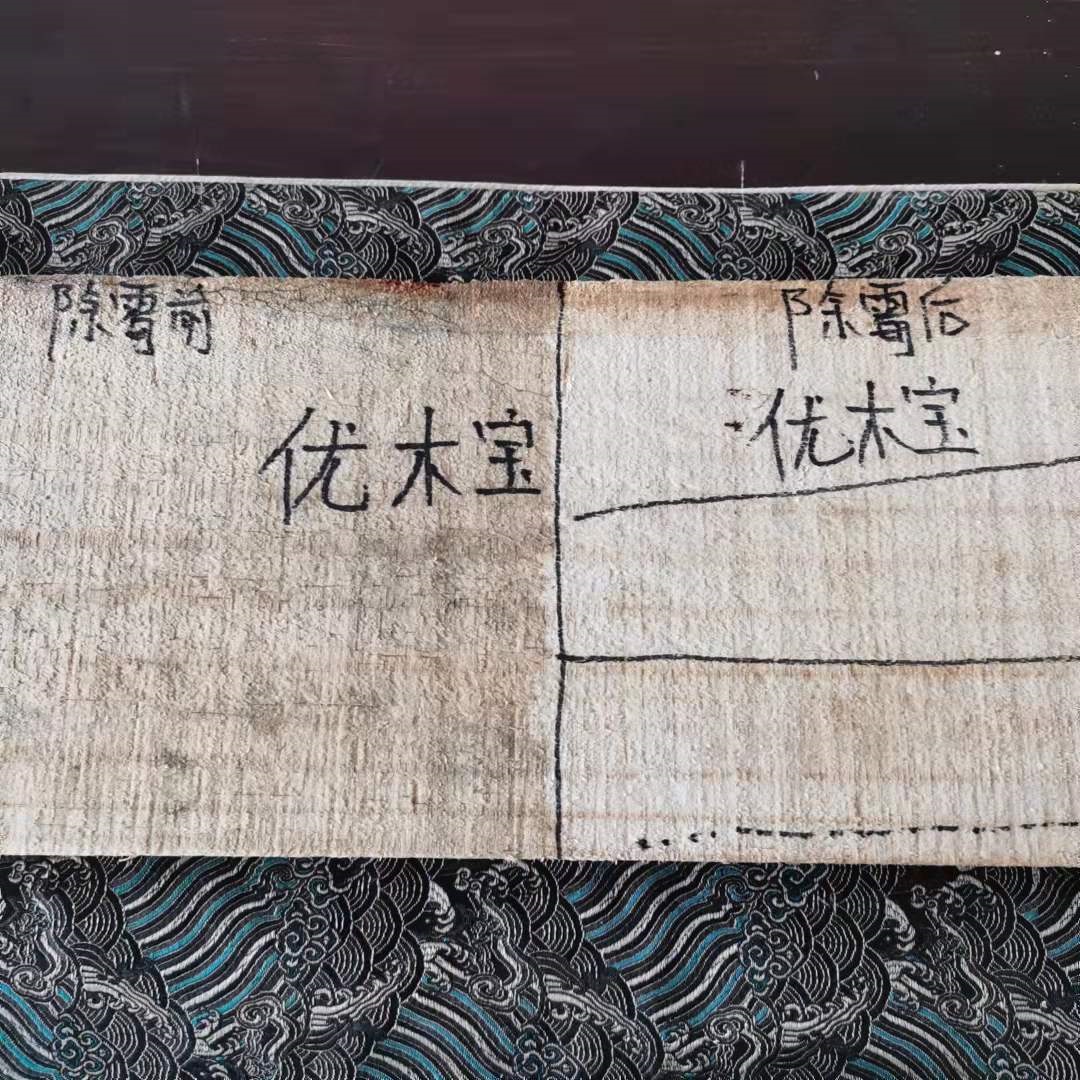 除霉前
优木宝
除霉后
优木宝